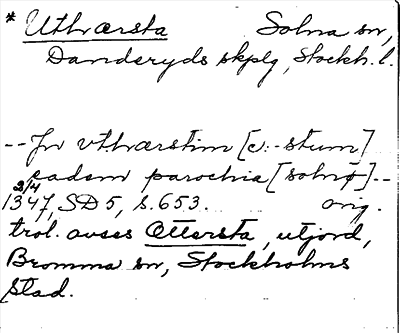 * Uthværsta Solna sn,
Danderyds skplg, Stockh. l.
-- Jn vthværstim [c: -stum]
eadem parochia [solnø] --
2/4
1347, SD 5, s. 653. orig.
trol. avses Ottersta, utjord,
Bromma sn, Stockholms
stad.